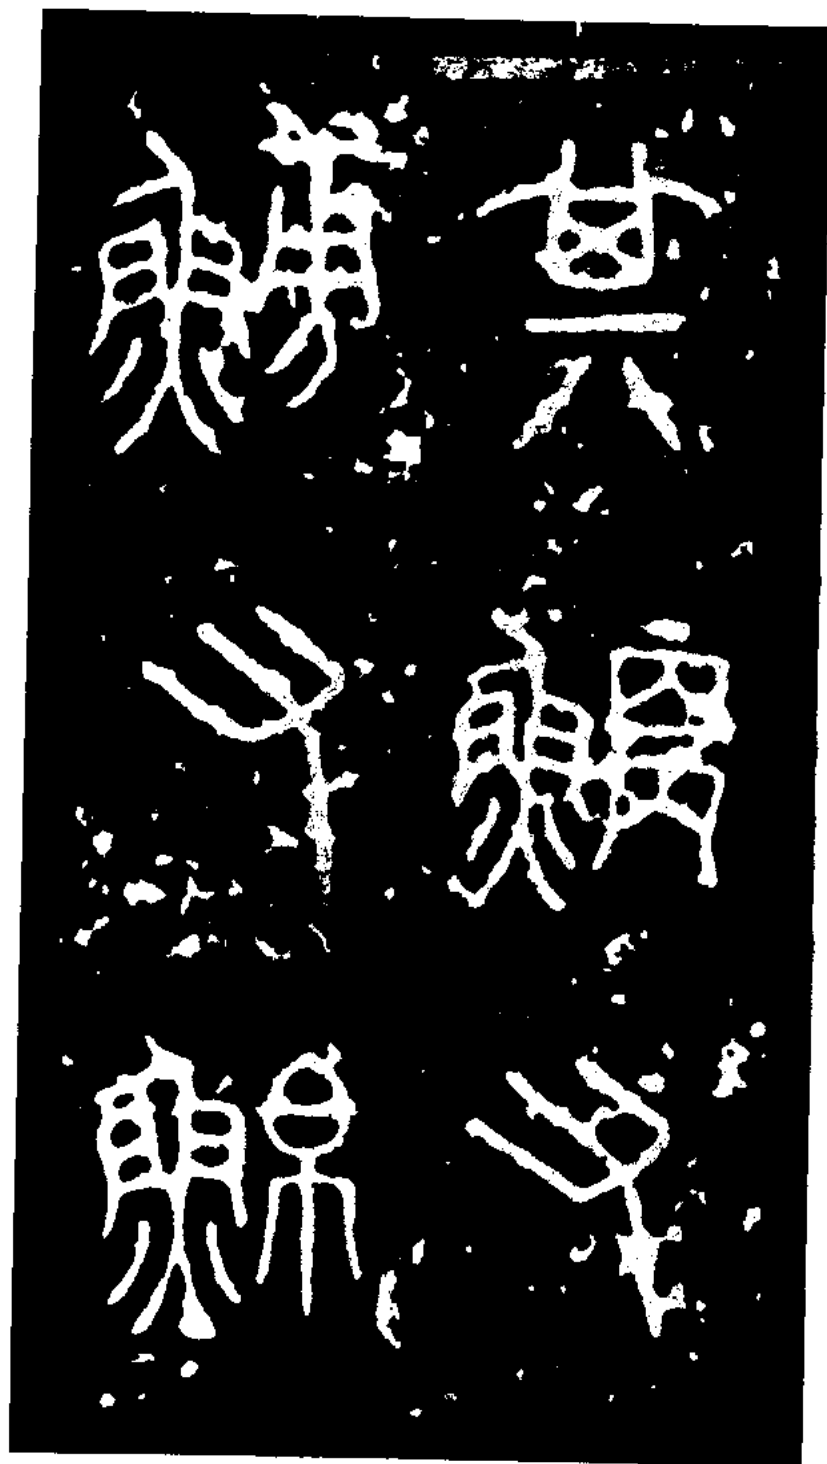 其鯾又
鱄又鮊